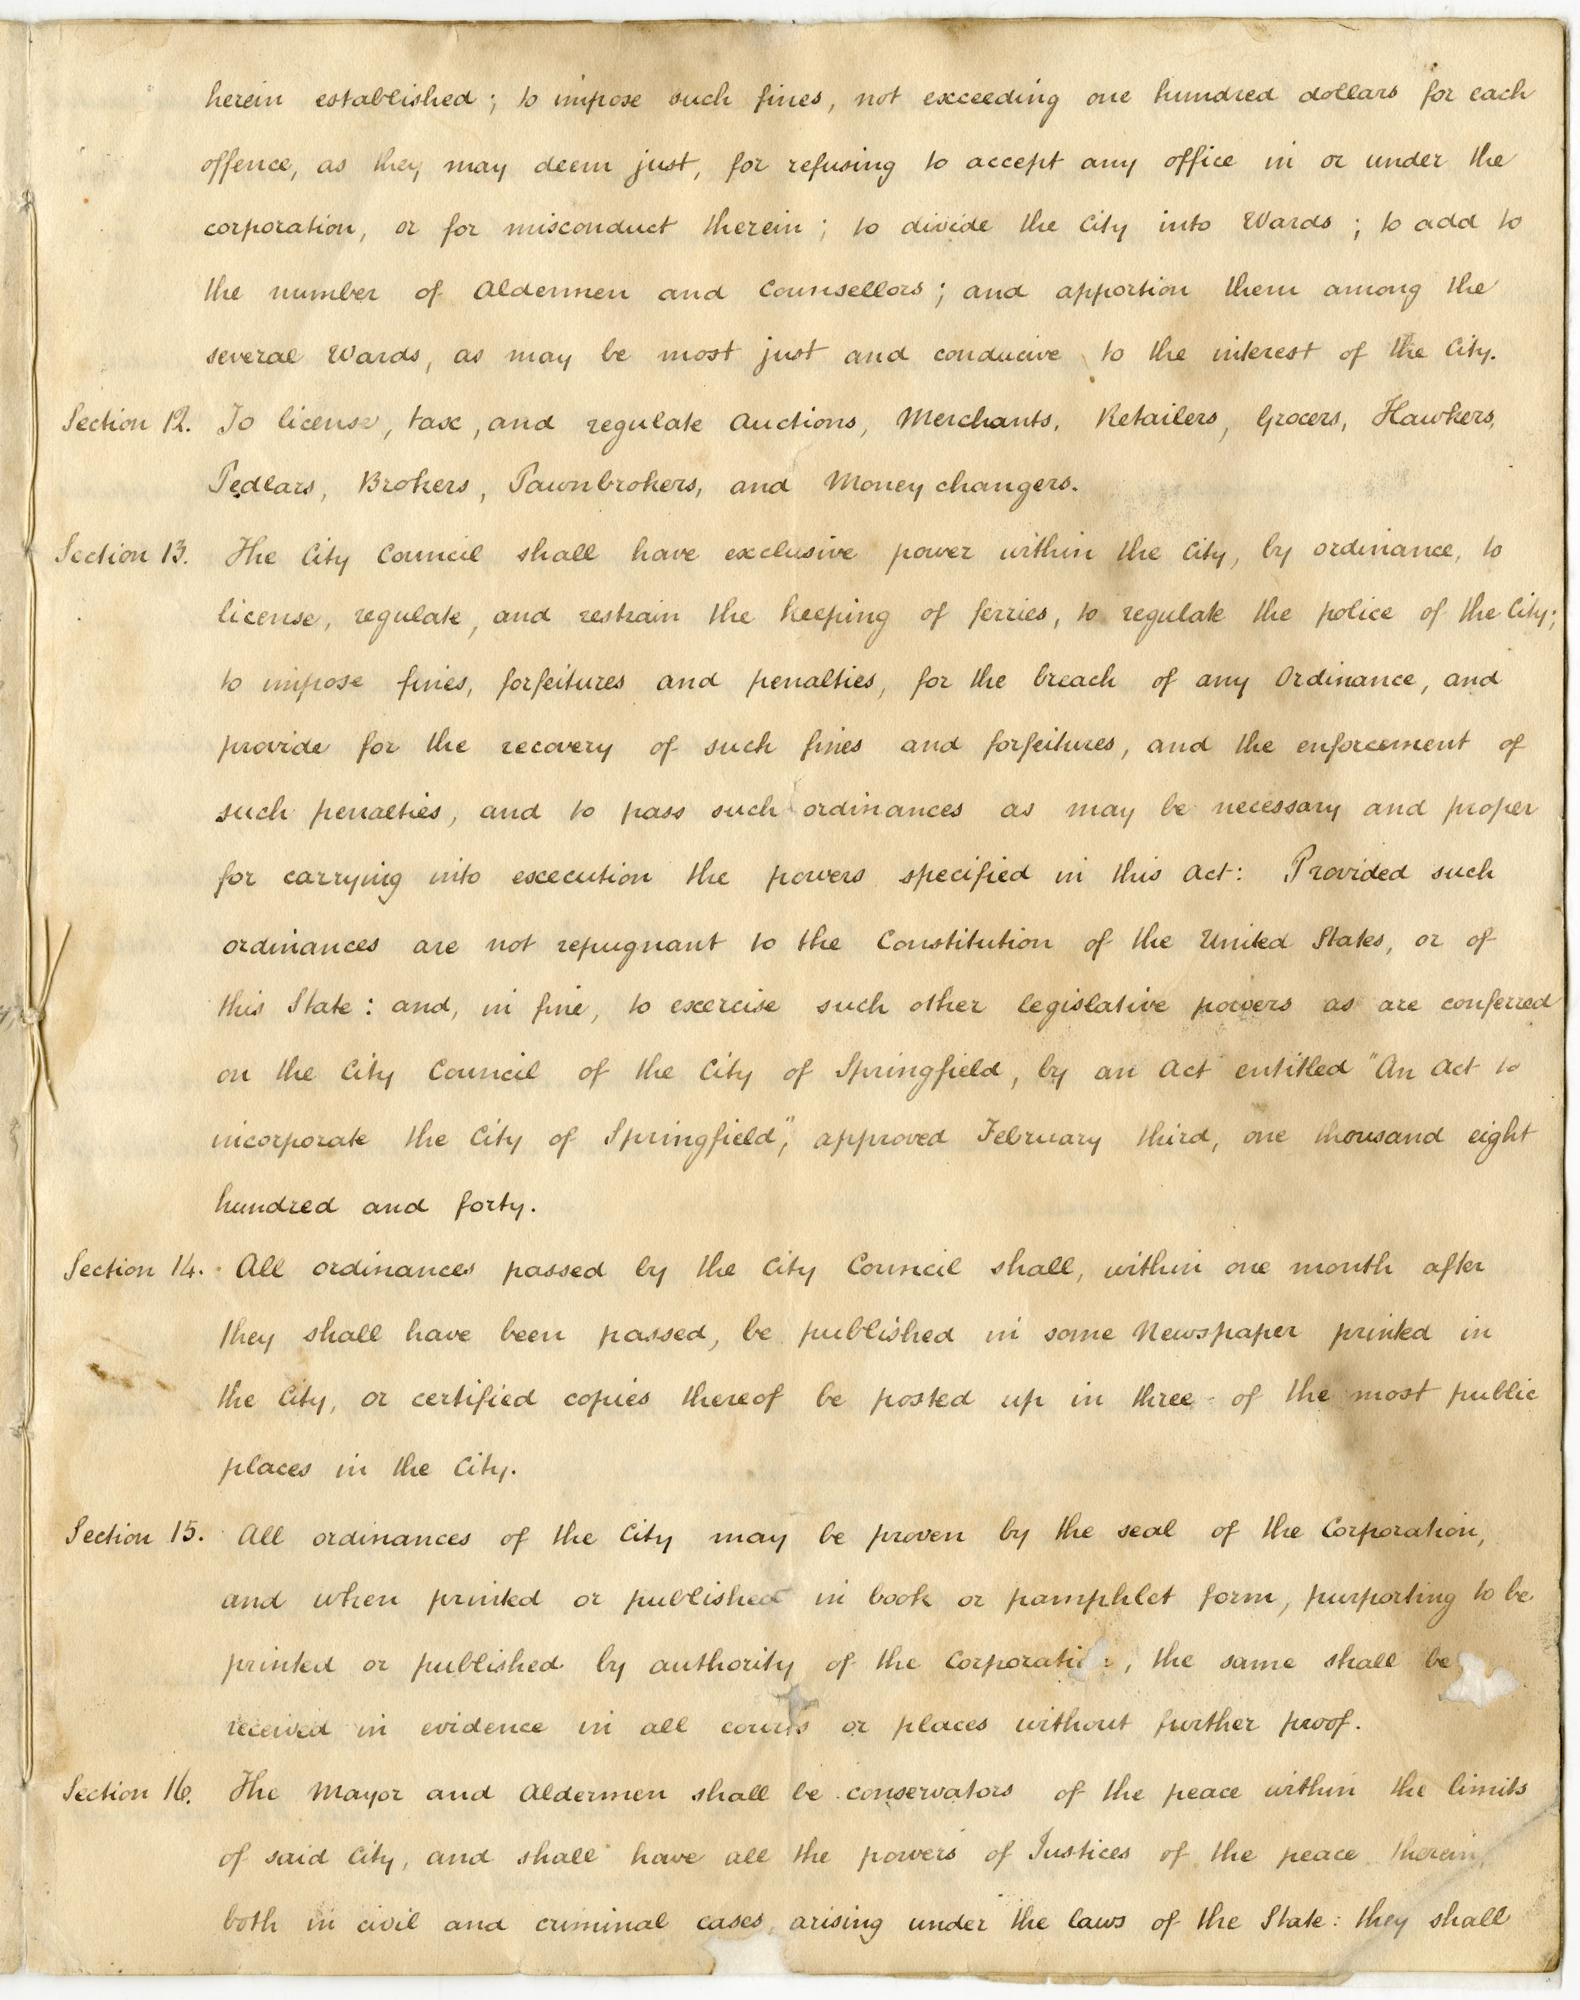 herein established; to impose such fines, not exceeding one hundred dollars for each
offence, as they may deem just, for refusing to accept any office in or under the
corporation, or for misconduct therein; to divide the City into Wards; to add to
the number of Aldermen and Counsellors; and apportion them among the
several Wards, as may be most just and conducive to the interest of the City.
Section 12. To license, tax, and regulate Auctions, Merchants, Retailers, Grocers, Hawkers,
Pedlars, Brokers, Pawnbrokers, and Money changers.
Section 13. The City Council shall have exclusive power within the City, by ordinance, to
license, regulate, and restrain the keeping of ferries, to regulate the police of the City;
to impose fines, forfeitures and penalties, for the breach of any Ordinance, and
provide for the recovery of such fines and forfeitures, and the enforcement of
such penalties, and to pass such ordinances as may be necessary and proper
for carrying into execution the powers specified in this Act: Provided such
ordinances are not repugnant to the Constitution of the United States, or of
this State: and, in fine, to exercise such other legislative powers as are conferred
on the City Council of the City of Springfield, by an Act entitled "An Act to
incorporate the City of Springfield", approved February third, one thousand eight
hundred and forty.
Section 14. All ordinances passed by the City Council shall, within one month after
they shall have been passed, be published in some Newspaper printed in
the City, or certified copies thereof be posted up in three of the most public
places in the City.
Section 15. All ordinances of the City may be proven by the seal of the Corporation,
and when printed or published in book or pamphlet form, purporting to be
printed or published by authority of the Corporation, the same shall be
received in evidence in all courts or places without further proof.
Section 16. The Mayor and Aldermen shall be conservators of the peace within the limits
of said City, and shall have all the powers of Justices of the peace therein,
both in civil and criminal cases, arising under the laws of the State: they shall